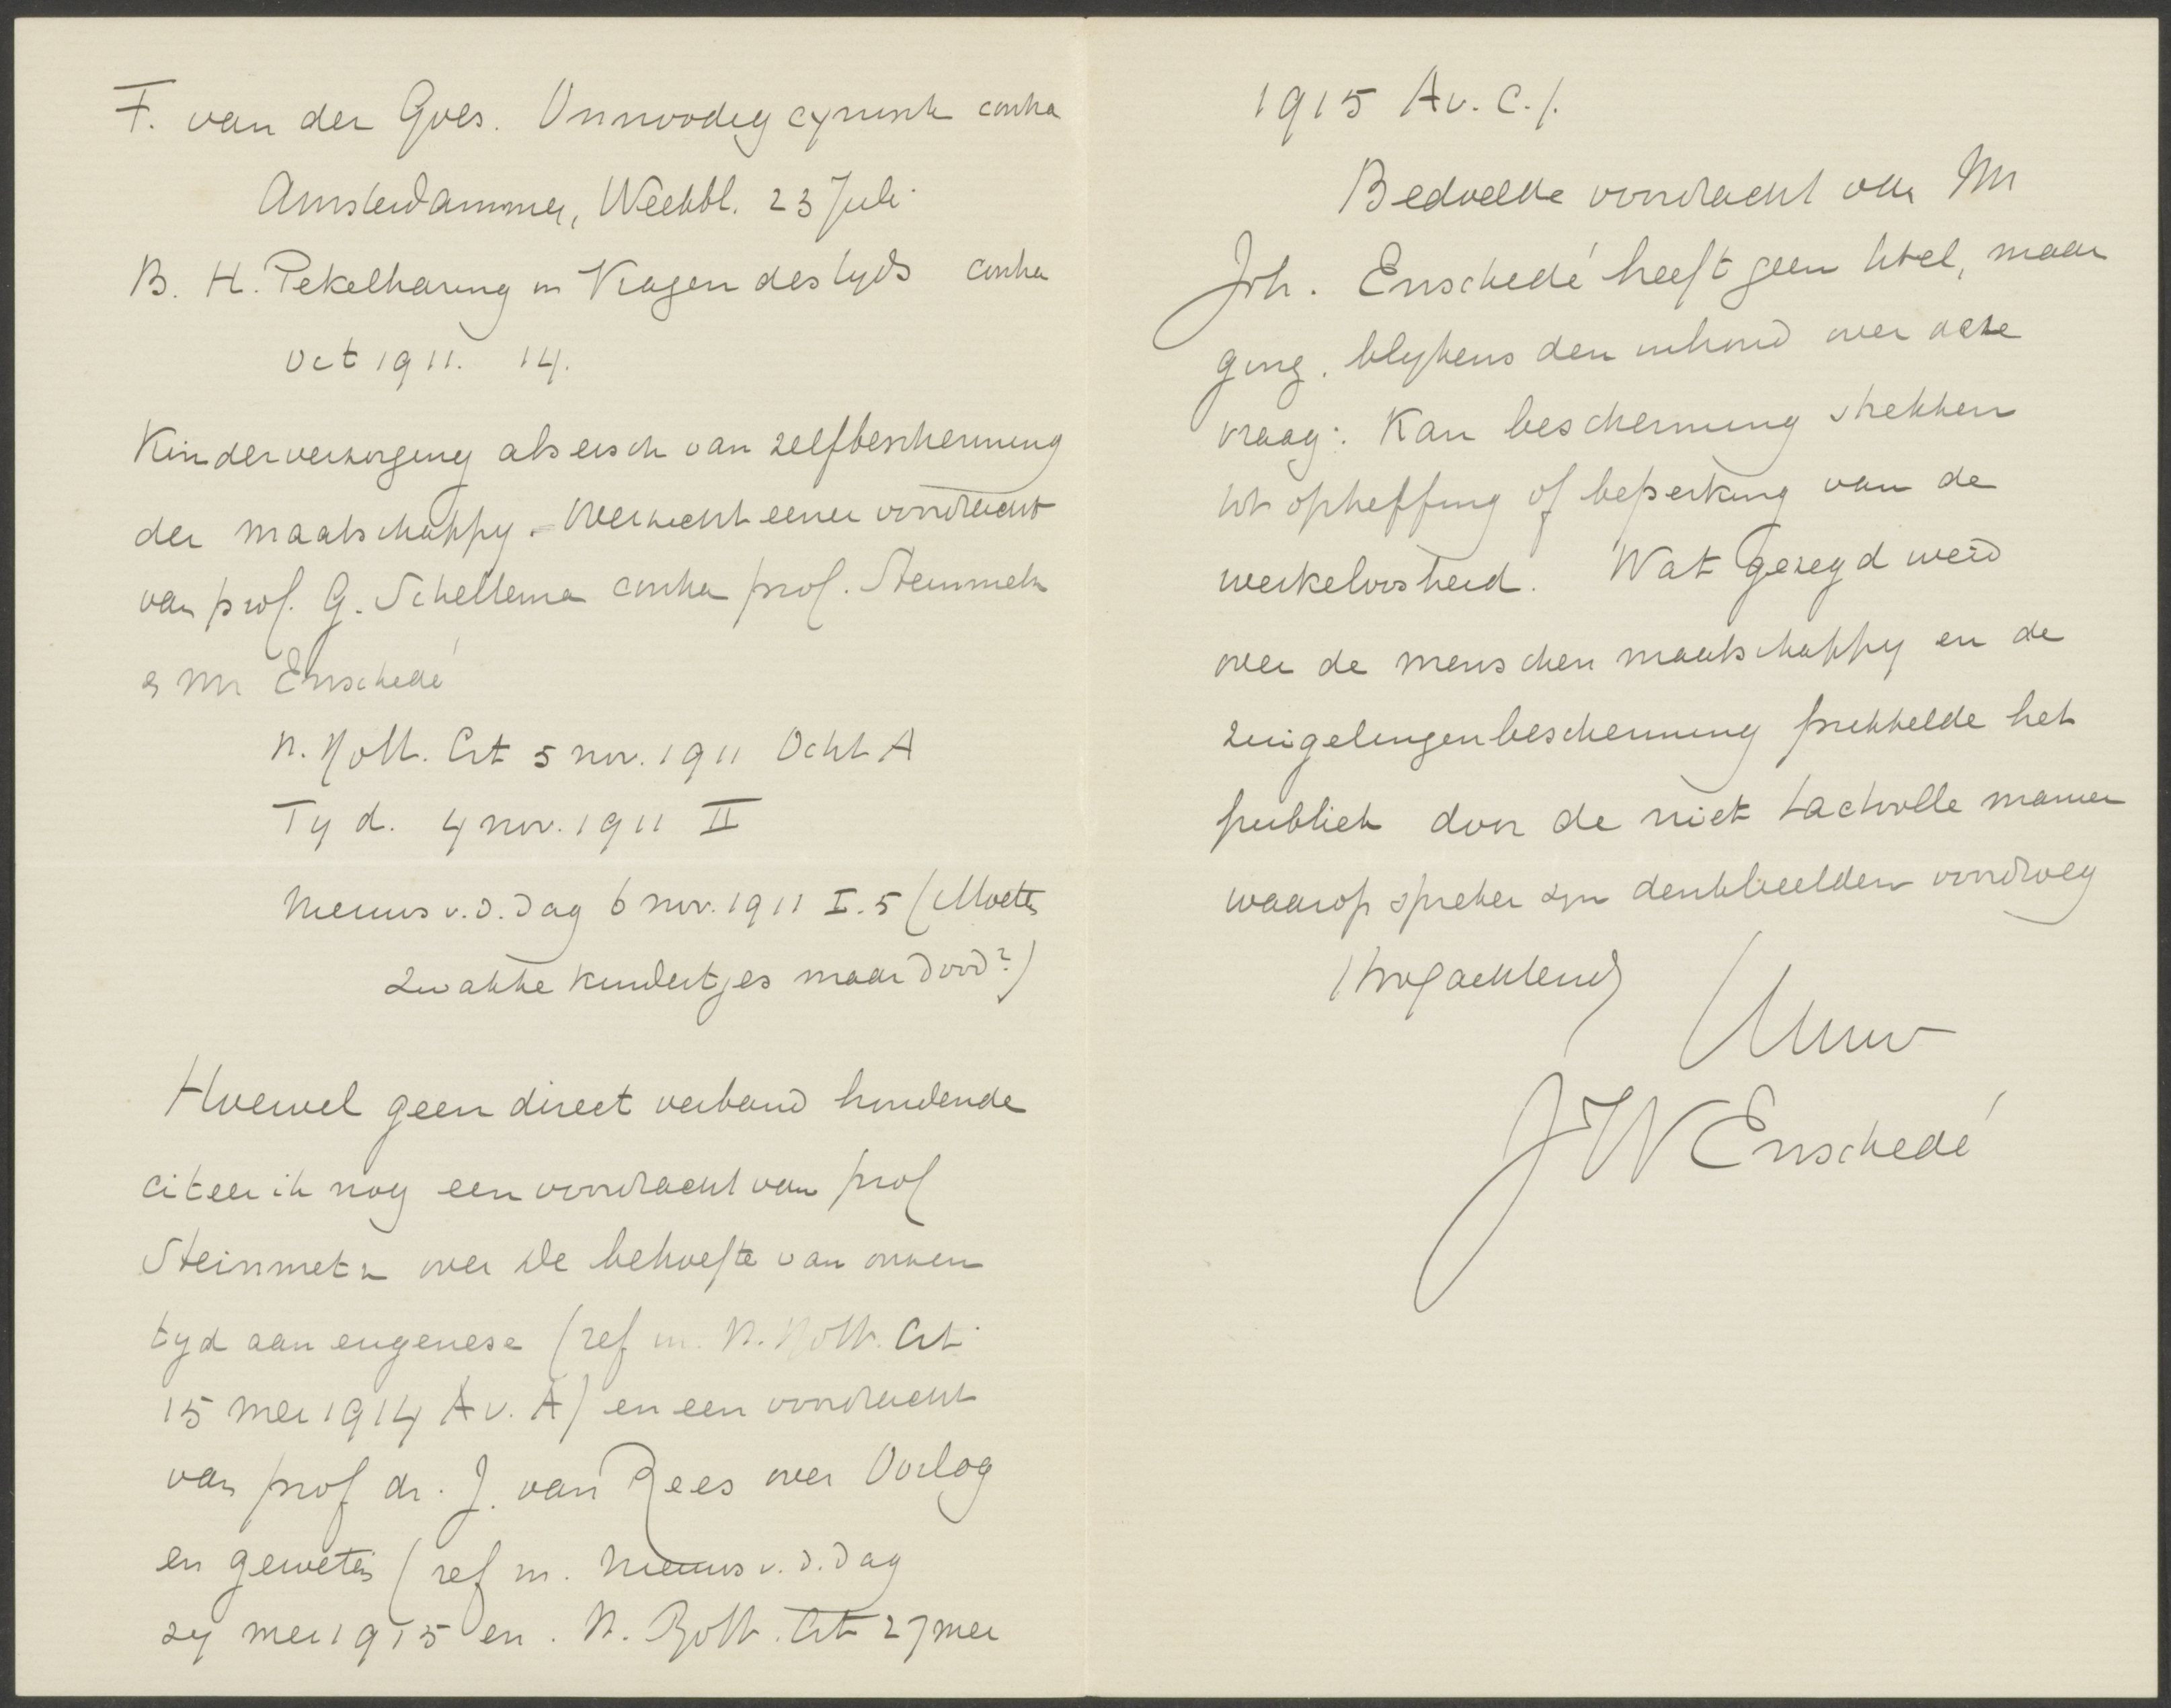 F. van der Goes. Onnoodig cynisch contra
Amsterdammer, Weekbl. 23 Juli
B. H. Pekelharing in Vragen des tyds contra
Oct 1911. 14.
Kinderverzorging als eisch van zelfbescherming
der maatschappy. Overzicht eener voordracht
van prof. G. Scheltema contra prof. Steinmetz
& Mr Enschedé
N. Rott. Crt 5 nov. 1911 Ocht A
Tyd. 4 nov. 1911 II
Nieuws v. d. Dag 6 nov. 1911 I. 5 (Moeten
zwakke kindertjes maar dood?)
Hoewel geen direct verband houdende
citeer ik nog een voordracht van prof
Steinmetz over De behoefte van onzen
tyd aan eugenese (ref in. N. Rott. Crt.
15 mei 1914 Av. A) en een voordracht
van prof dr. J. van Rees over Oorlog
en geweten (ref in. Nieuws v. d. Dag
24 mei 1915 en. N. Rott. Crt 27 mei
1915 Av. C.).
Bedoelde voordracht van Mr
Joh. Enschedé heeft geen titel, maar
ging. blykens den inhoud over deze
vraag: Kan bescherming strekken
tot opheffing of beperking van de
werkeloosheid. Wat gezegd werd
over de menschen maatschappy en de
zuigelingenbescherming prikkelde het
publiek door de niet tactvolle manier
waarop spreker zyn denkbeelden voordroeg
Hoogachtend
Uw
JW Enschedé